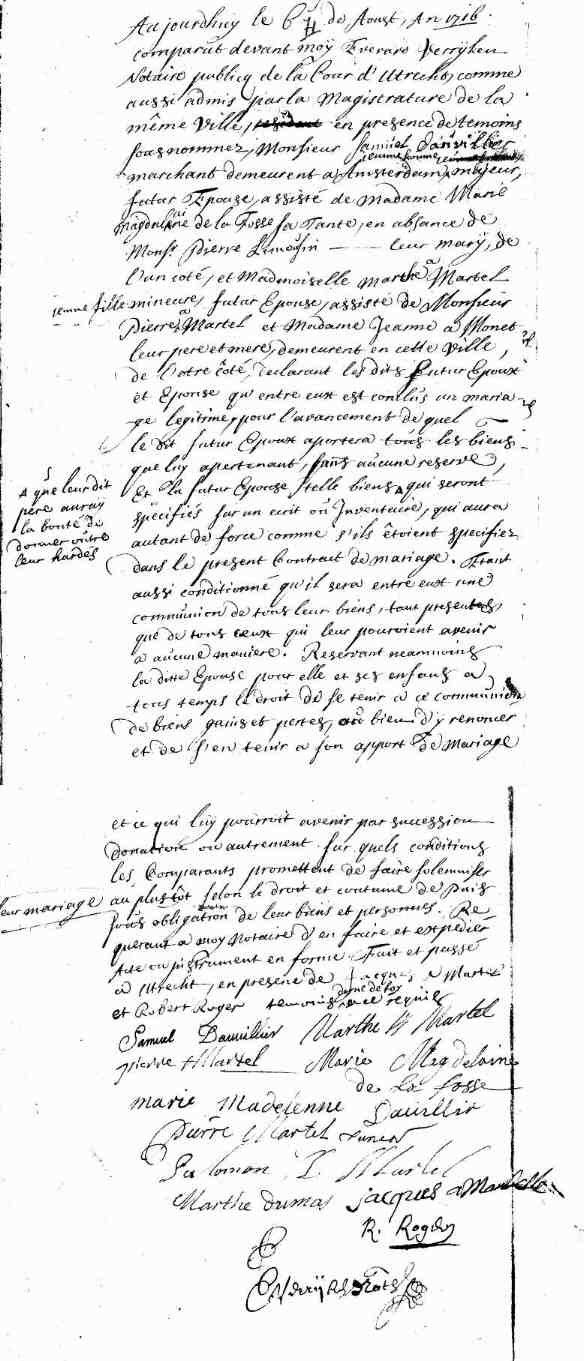 Aujourdhuy le 6 de Aoust, An 1716.
comparût devant moÿ Everard Verrÿken
Notaire publicq de la Cour d'Utrecht, comme
aussi admis par la Magistrature de la
même Ville, en presence de temoins
sousnommez, Monsieur Samuel Dauvillier
marchant demeurent a Amsterdam, majeur,
futur Epoux, assisté de Madame Marie
Magdelaine de la Fosse sa Tante, en absance de
Monsr. Pierre Limousin leur marÿ, de
l'un coté, et Mademoiselle Marthe a Martel
jeune fille mineure, futur Epouse, assisté de Monsieur
Pierre a Martel et Madame Jeanne a Monet
leur pere et mere, demeurent en cette Ville,
de l'otre côté, declarant les dits futur Epoux
et Epouse qu'entre eux est conclûs un maria-
ge legitime, pour l'avancement de quel
le dit futur Epoux aportera toûs les biens
que luy apertenant, sans aucune reserve,
Et la futur Epouse telle biens qui seront
A que leur dit
pere auraÿ
la bonté de
donner outre
leur hardes
spécifiés sur un ecrit oû Inventaire, qui aura
autant de force comme s'ils êtoient specifiez
dans le present Contrait de mariage. Etant
aussi conditionné qu'il sera entre eux une
communion de tous leur biens, tant presentes,
que de tous ceux qui leur pouroient avenir
a aucune maniere. Reservant neamnoins
la ditte Epouse pour elle et ses enfans a
tous temps le droit de se tenir a ce communion
de biens gains et pertes, oû bien d'ÿ renoncer
et de s'en tenir a son apport de mariage
et ce qui luy pourroit avenir par succession
donation ou autrement. sur quels conditions
les Comparants promettent de faire solemniser
leur mariage au plustôt selon le droit et coutume de Païs
sous obligation de leur biens et personnes. Re-
querant a moy Notaire d'en faire et expedier
Acte ou instrument en forme. Fait et passé
a Utrecht, en presene de Jacques a Martel
et Robert Roger temoins digne de foy requis
Samuel Dauvillier Marthe Martel
pierre Martel Marie Magdelaine
de La fosse
marie Madelenne Dauillir
Pierre Martel Junior
Salomon Martel
Marthe Dumas jacques a Martel
R. Roger
EVerrÿken Nots